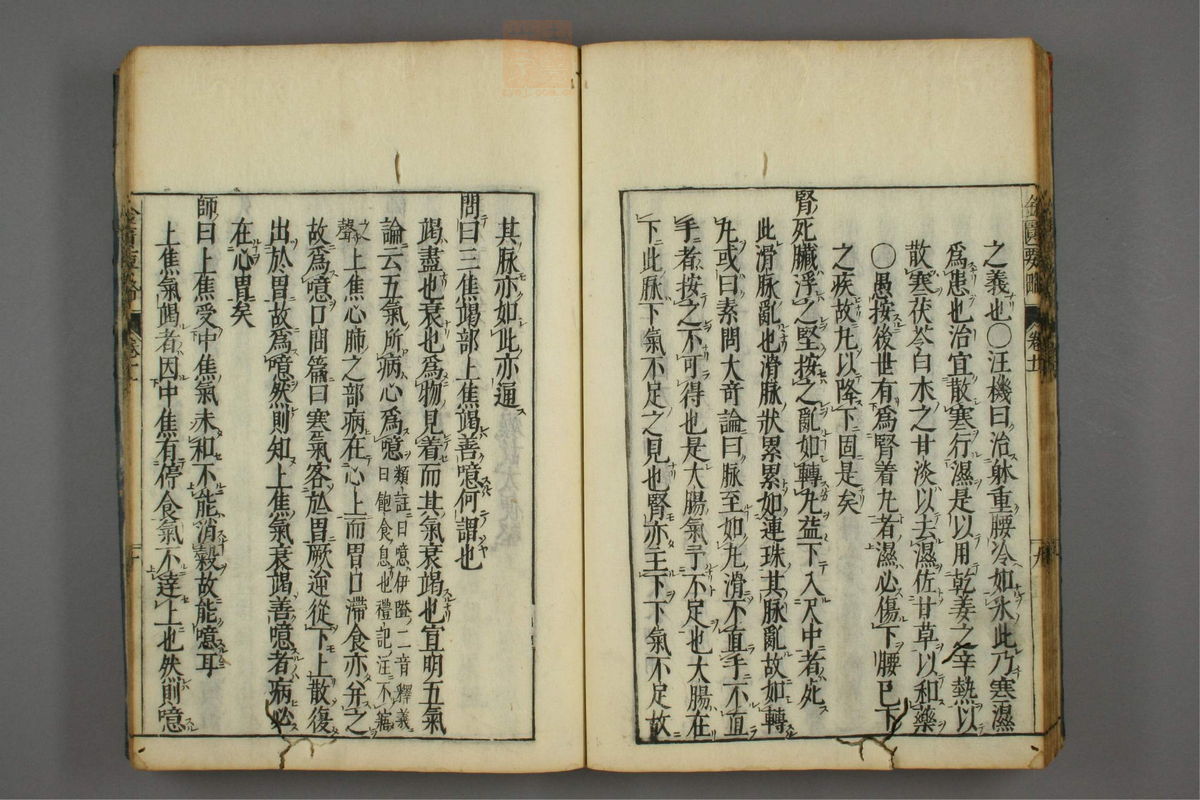 之義也〇汪機曰治躰重腰冷如氷此乃寒濕
爲患也治宜散寒行濕是以用乾姜之辛熱以
散寒茯苓白木之甘淡以去濕佐甘草以和藥
〇愚按後世有爲腎着丸者濕必傷下腰已下
之疾故丸以降下固是矣
腎死臟浮之堅按之亂如轉丸益下入尺中者死
此滑脉亂也滑脉狀累累如連珠其脉亂故如轉
丸或曰素問大奇論曰脉至如丸滑不直手不直
手者按之不可得也是大腸氣予不足也大腸在
下此脉下氣不足之見也腎亦主下下氣不足故
金匱要略
其脉亦如此亦通
問曰三焦竭部上焦竭善噫何謂也
竭盡也衰也爲物見着而其氣衰竭也宜明五氣
論云五氣所病心爲噫類註曰噫伊隘二音釋義曰飽食息也禮記注不寤
之聲上焦心肺之部病在心上而胃口滯食亦弁之
故爲噫口問篇曰寒氣客於胃厥逆從下上散復
出於胃故爲噫然則知上焦氣衰竭善噫者病必
在心胃矣
師曰上焦受中焦氣未和不能消穀故能噫耳
上焦氣竭者因中焦有停食氣不達上也然則噫